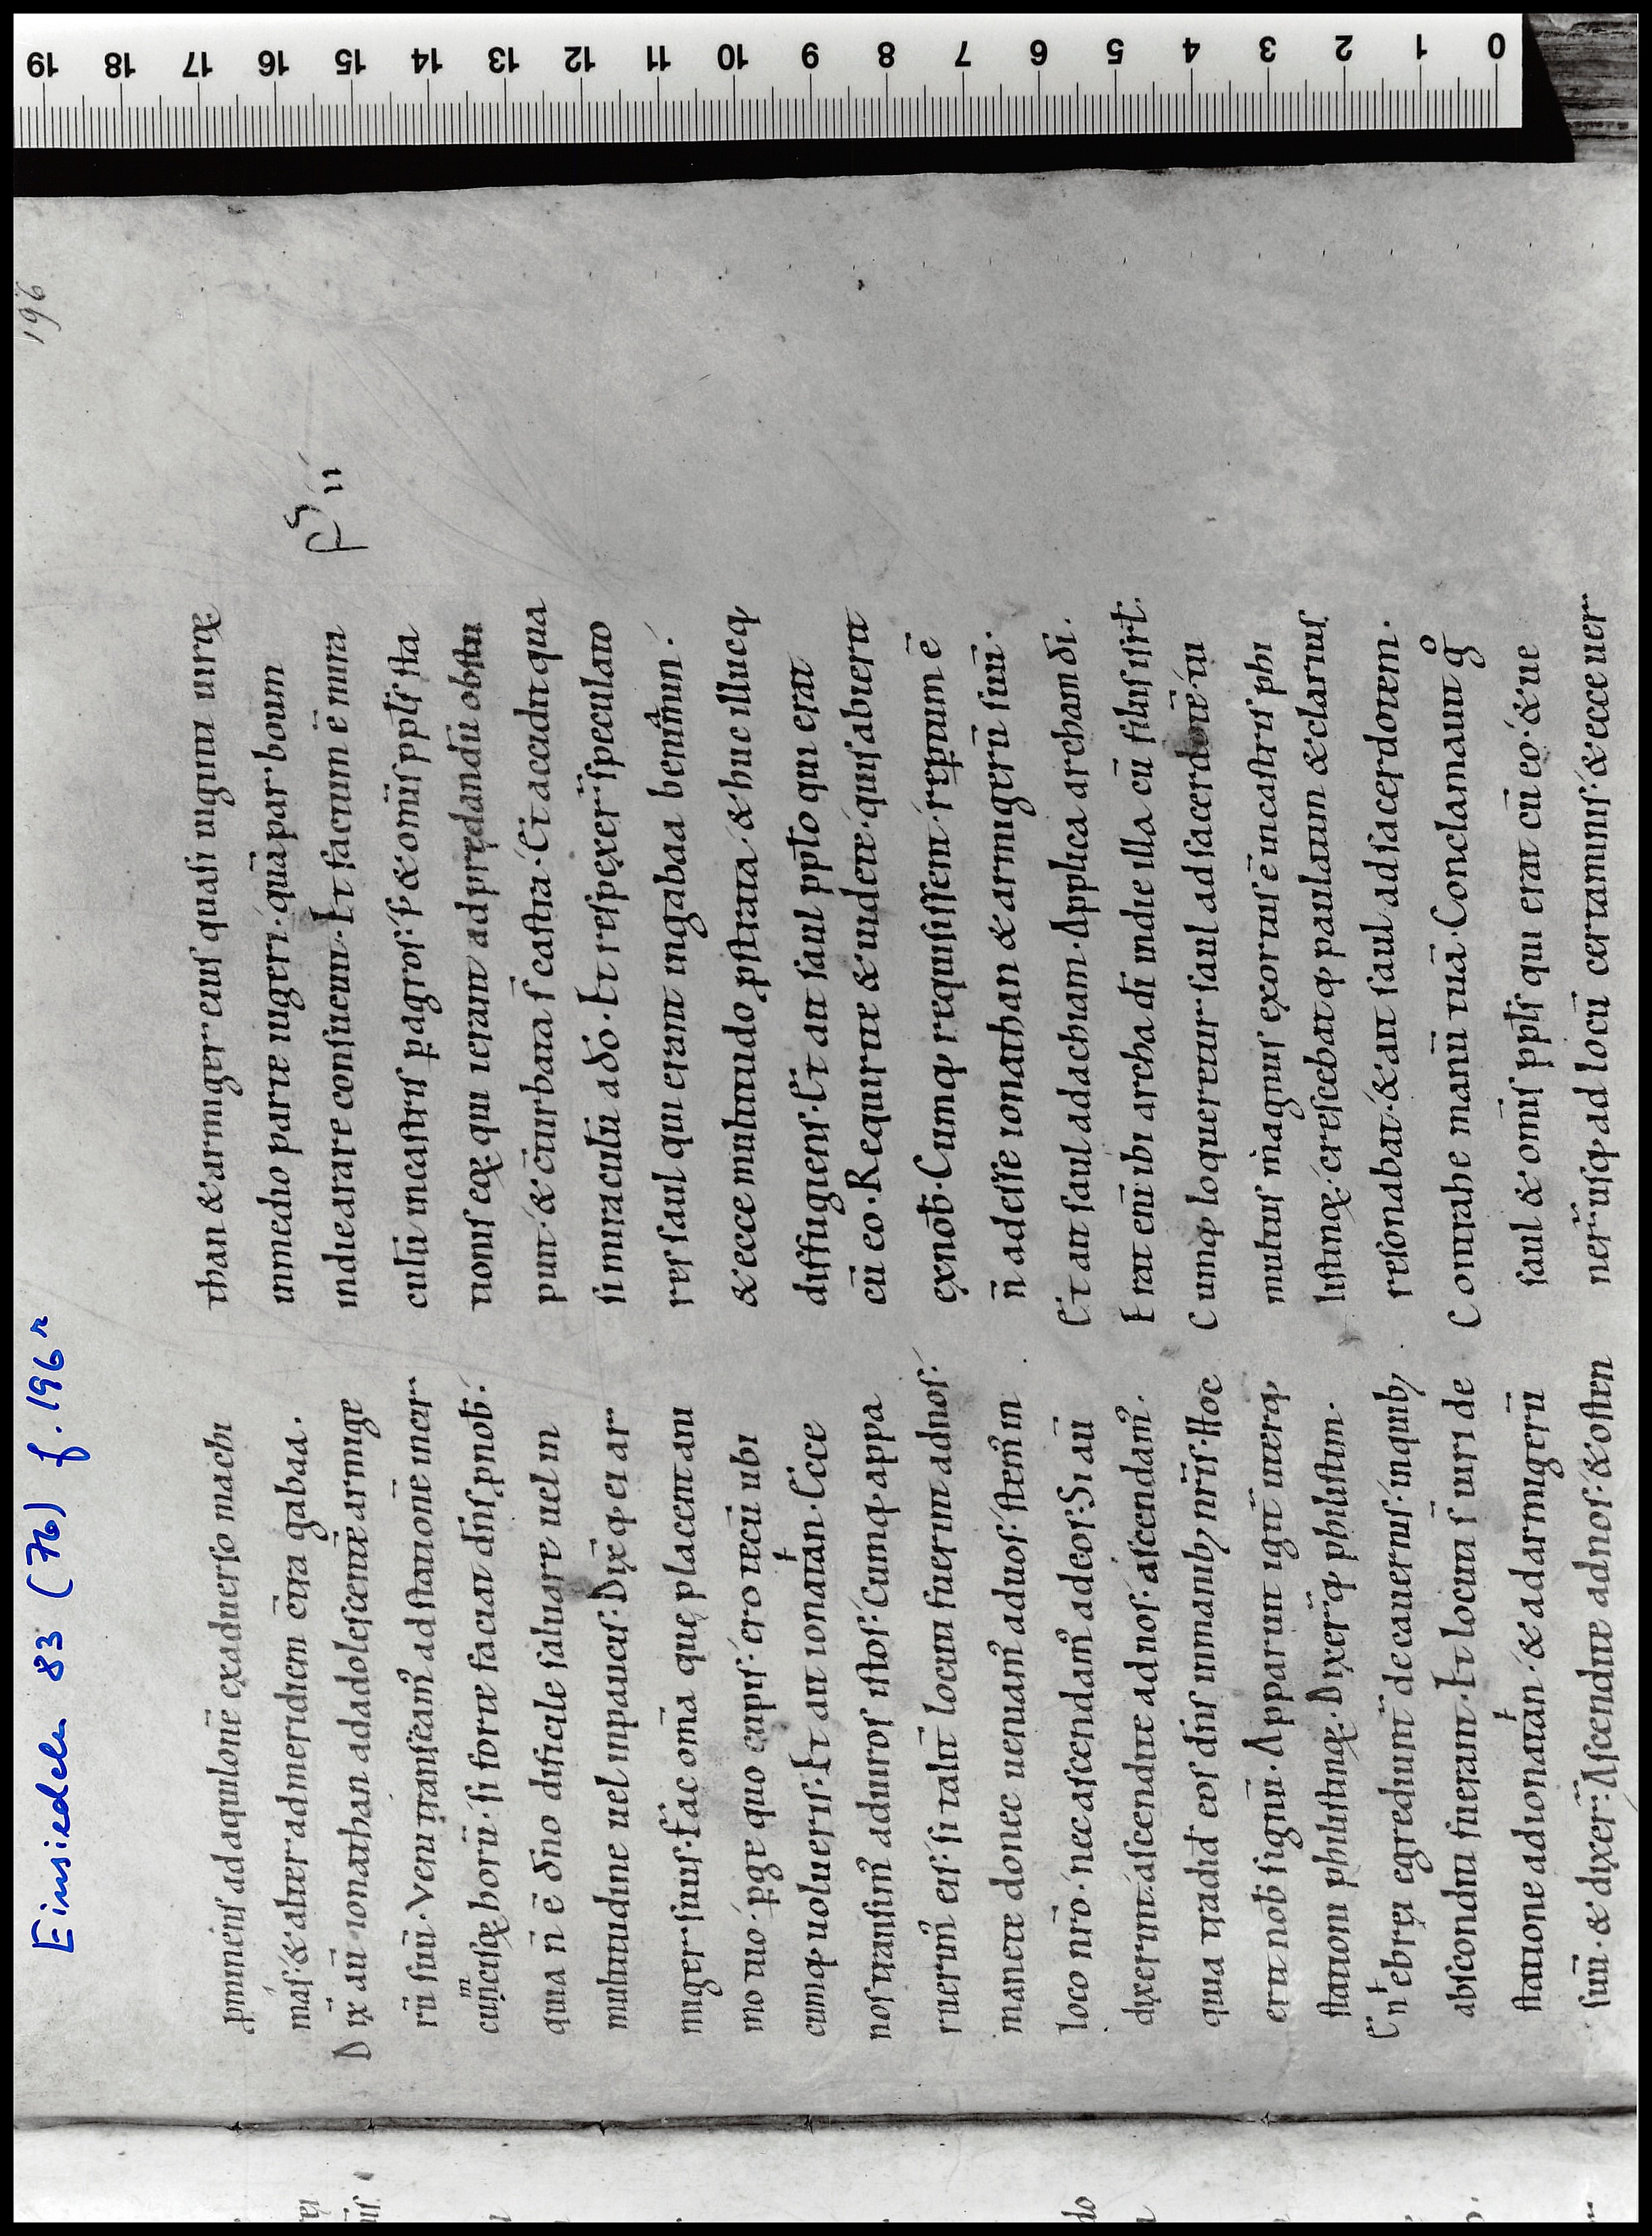 Einsiedeln 83 (76) f. 196 r
196
ꝓminenſ adaquilonē exaduerſo machi
máſ· & alter admeridiem c̄tra gabaa.
Dix̄ aū ionathan adadoleſcentē armige
rū ſuū. Veni tranſeamꝰ ad ſtationē incir
cūnciſoꝝ horū· ſi forte faciat dn̄ſ ꝓnob̄·
quia n̄ ē dn̄o dificile ſaluare uel in
multitudine uel inpauciſ. Dix̄ qꝫ ei ar
miger ſuuſ. Fac om̄a quę placent ani
mo tuo· ꝑge quo cupiſ· ero tecū ubi
cumqꝫ uolueriſ. Et ait ionatan. Ecce
noſ tranſimꝰ aduiroſ iſtoſ. Cumqꝫ appa
ruerimꝰ eiſ· ſi taliť locuti fuerint adnoſ·
manete donec ueniamꝰ aduoſ· ſtemꝰ in
loco nr̄o· nec aſcendamꝰ adeoſ. Si aū
dixerint· aſcendite adnoſ· aſcendamꝰ.
quia tradid̄ eoſ dn̄ſ inmanibꝫ nr̄iſ. Hoc
erit nob̄ ſignū. Apparuit igit̄ uterqꝫ
ſtationi philiſtinoꝝ. Dixer̄qꝫ philiſtim.
En ebręi egrediunt̄ decauerniſ· inquibꝫ
abſconditi fuerant. Et locuti ſ̄ uiri de
ſtatione adionatan· & adarmigerū
ſuū· & dixer̄. Aſcendite adnoſ· & oſten
than & armiger eiuſ quaſi uiginti uirꝫ
inmedio parte iugeri· quā par boum
indie arare conſueuit. Et factum ē mira
culū incaſtriſ p agroſ· ſꝫ & om̄iſ ppl̄ſ ſta
tioniſ eoꝝ· qui ierant adprędandū obſtu
puit· & c̄turbata ſ̄ caſtra. Et accidit qua
ſi miraculū ado. Et reſpexer̄ ſpeculato
reſ ſaul qui erant ingabaa beniamin.
& ecce multitudo ꝓſtrata· & huc illucqꝫ
diffugienſ. Et ait ſaul ppl̄o qui erat
cū eo. Requirite & uidete· quiſ abierit
exnob̄. Cumqꝫ requiſiſſent· reptum ē
n̄ adeſſe ionathan & armigerū ſuū.
Et ait ſaul adachiam. Applica archam di.
Erat enī ibi archa dī indie illa cū filiiſ iſrł.
Cumqꝫ loqueretur ſaul adſacerdotē· tu
multuſ magnuſ exortuſ ē incaſtriſ phi
liſtinoꝝ· creſcebatqꝫ paulatim & clariuſ
reſonabat· & ait ſaul adſacerdotem.
Contrahe manū tuā. Conclamauit gͦ
ſaul & om̄iſ ppl̄ſ qui erat cū eo· & ue
ner̄ uſqꝫ ad locū certaminiſ· & ecce uer
0 1 2 3 4 5 6 7 8 9 10 11 12 13 14 15 16 17 18 19